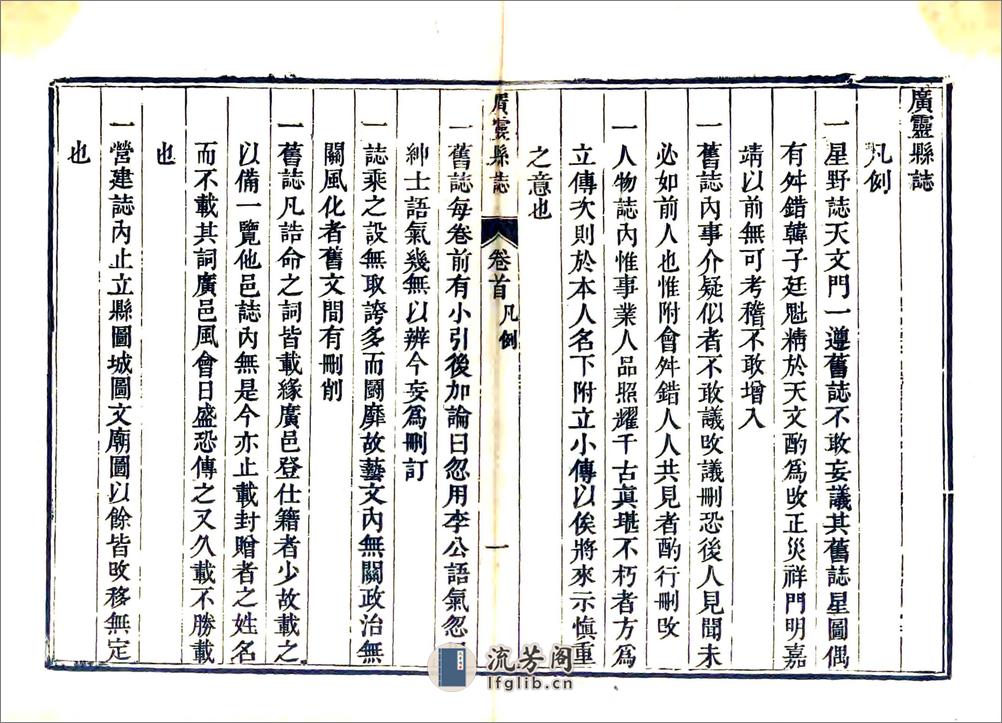 廣靈縣誌
凡例
一星野誌天文門一遵舊誌不敢妄議其舊誌星圖偶
有舛錯韓子廷魁精於天文酌為改正災祥門明嘉
靖以前無可考稽不敢增入
一舊誌內事介疑似者不敢議改議刪恐後人見聞未
必如前人也惟附會舛錯人人共見者酌行刪改
一人物誌內惟事業人品照耀千古眞堪不朽者方為
立傳次則於本人名下附立小傳以俟將來示慎重
之意也
廣靈縣誌 卷首 凡例 一
一舊誌每卷前有小引後加論曰忽用李公語氣忽
紳士語氣幾無以辨今妄為刪訂
一誌乘之設無取誇多而鬭靡故藝文內無關政治無
關風化者舊文間有刪削
一舊誌凡誥命之詞皆載緣廣邑登仕籍者少故載之
以備一覽他邑誌內無是今亦止載封贈者之姓名
而不載其詞廣邑風會日盛恐傳之又久載不勝載
也
一營建誌內止立縣圖城圖文廟圖以餘皆改移無定
也
流芳阁
lfglib.cn